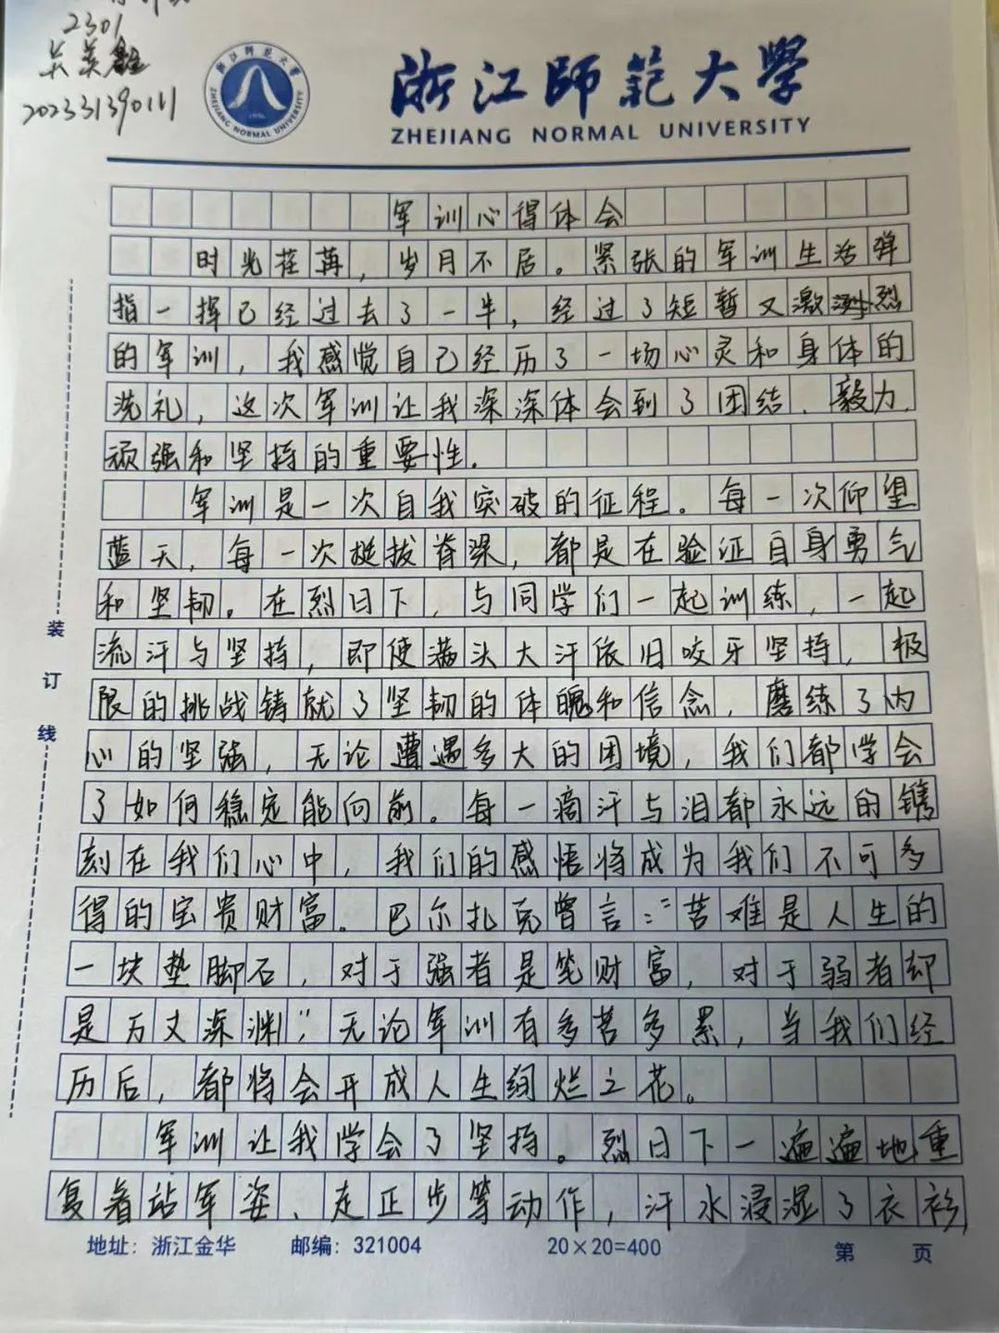 2301
202331390111
浙江師范大學
ZHEJIANG NORMAL UNIVERSITY
军训心得体会
时光荏苒，岁月不居。紧张的军训生活弹
指一挥已经过去了一半，经过了短暂又激烈
的军训，我感觉自己经历了一场心灵和身体的
洗礼，这次军训让我深深体会到了团结、毅力、
顽强和坚持的重要性.
军训是一次自我突破的征程。每一次仰望
蓝天，每一次挺拔脊梁，都是在验证自身勇气
和坚韧。在烈日下，与同学们一起训练，一起
流汗与坚持，即使满头大汗依旧咬牙坚持，极
限的挑战铸就了坚韧的体魄和信念，磨练了内
心的坚强，无论遭遇多大的困境，我们都学会
了如何稳定能向前。每一滴汗与泪都永远的镌
刻在我们心中，我们的感悟将成为我们不可多
得的宝贵财富。巴尔扎克曾言：“苦难是人生的
一块垫脚石，对于强者是笔财富，对于弱者却
是万丈深渊”；无论军训有多苦多累，当我们经
历后，都将会开成人生绚烂之花。
军训让我学会了坚持。烈日下一遍遍地重
复着站军姿、走正步等动作，汗水浸湿了衣衫
装
订
线
地址：浙江金华 邮编：321004 20×20=400 第 页